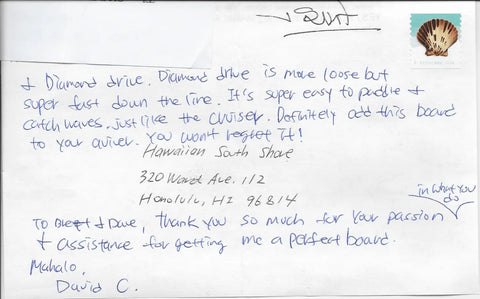 & Diamond drive. Diamond drive is more loose but
super fast down the line. It's super easy to paddle &
catch waves, just like the cruiser. Definitely add this board
to your quiver. You won't regret it!
Hawaiian South Shore
320 Ward Ave. 112
Honolulu, HI 96814
in what you
do
To & Dave, thank you so much for your passion
& assistance for getting me a perfect board.
Mahalo,
David C.